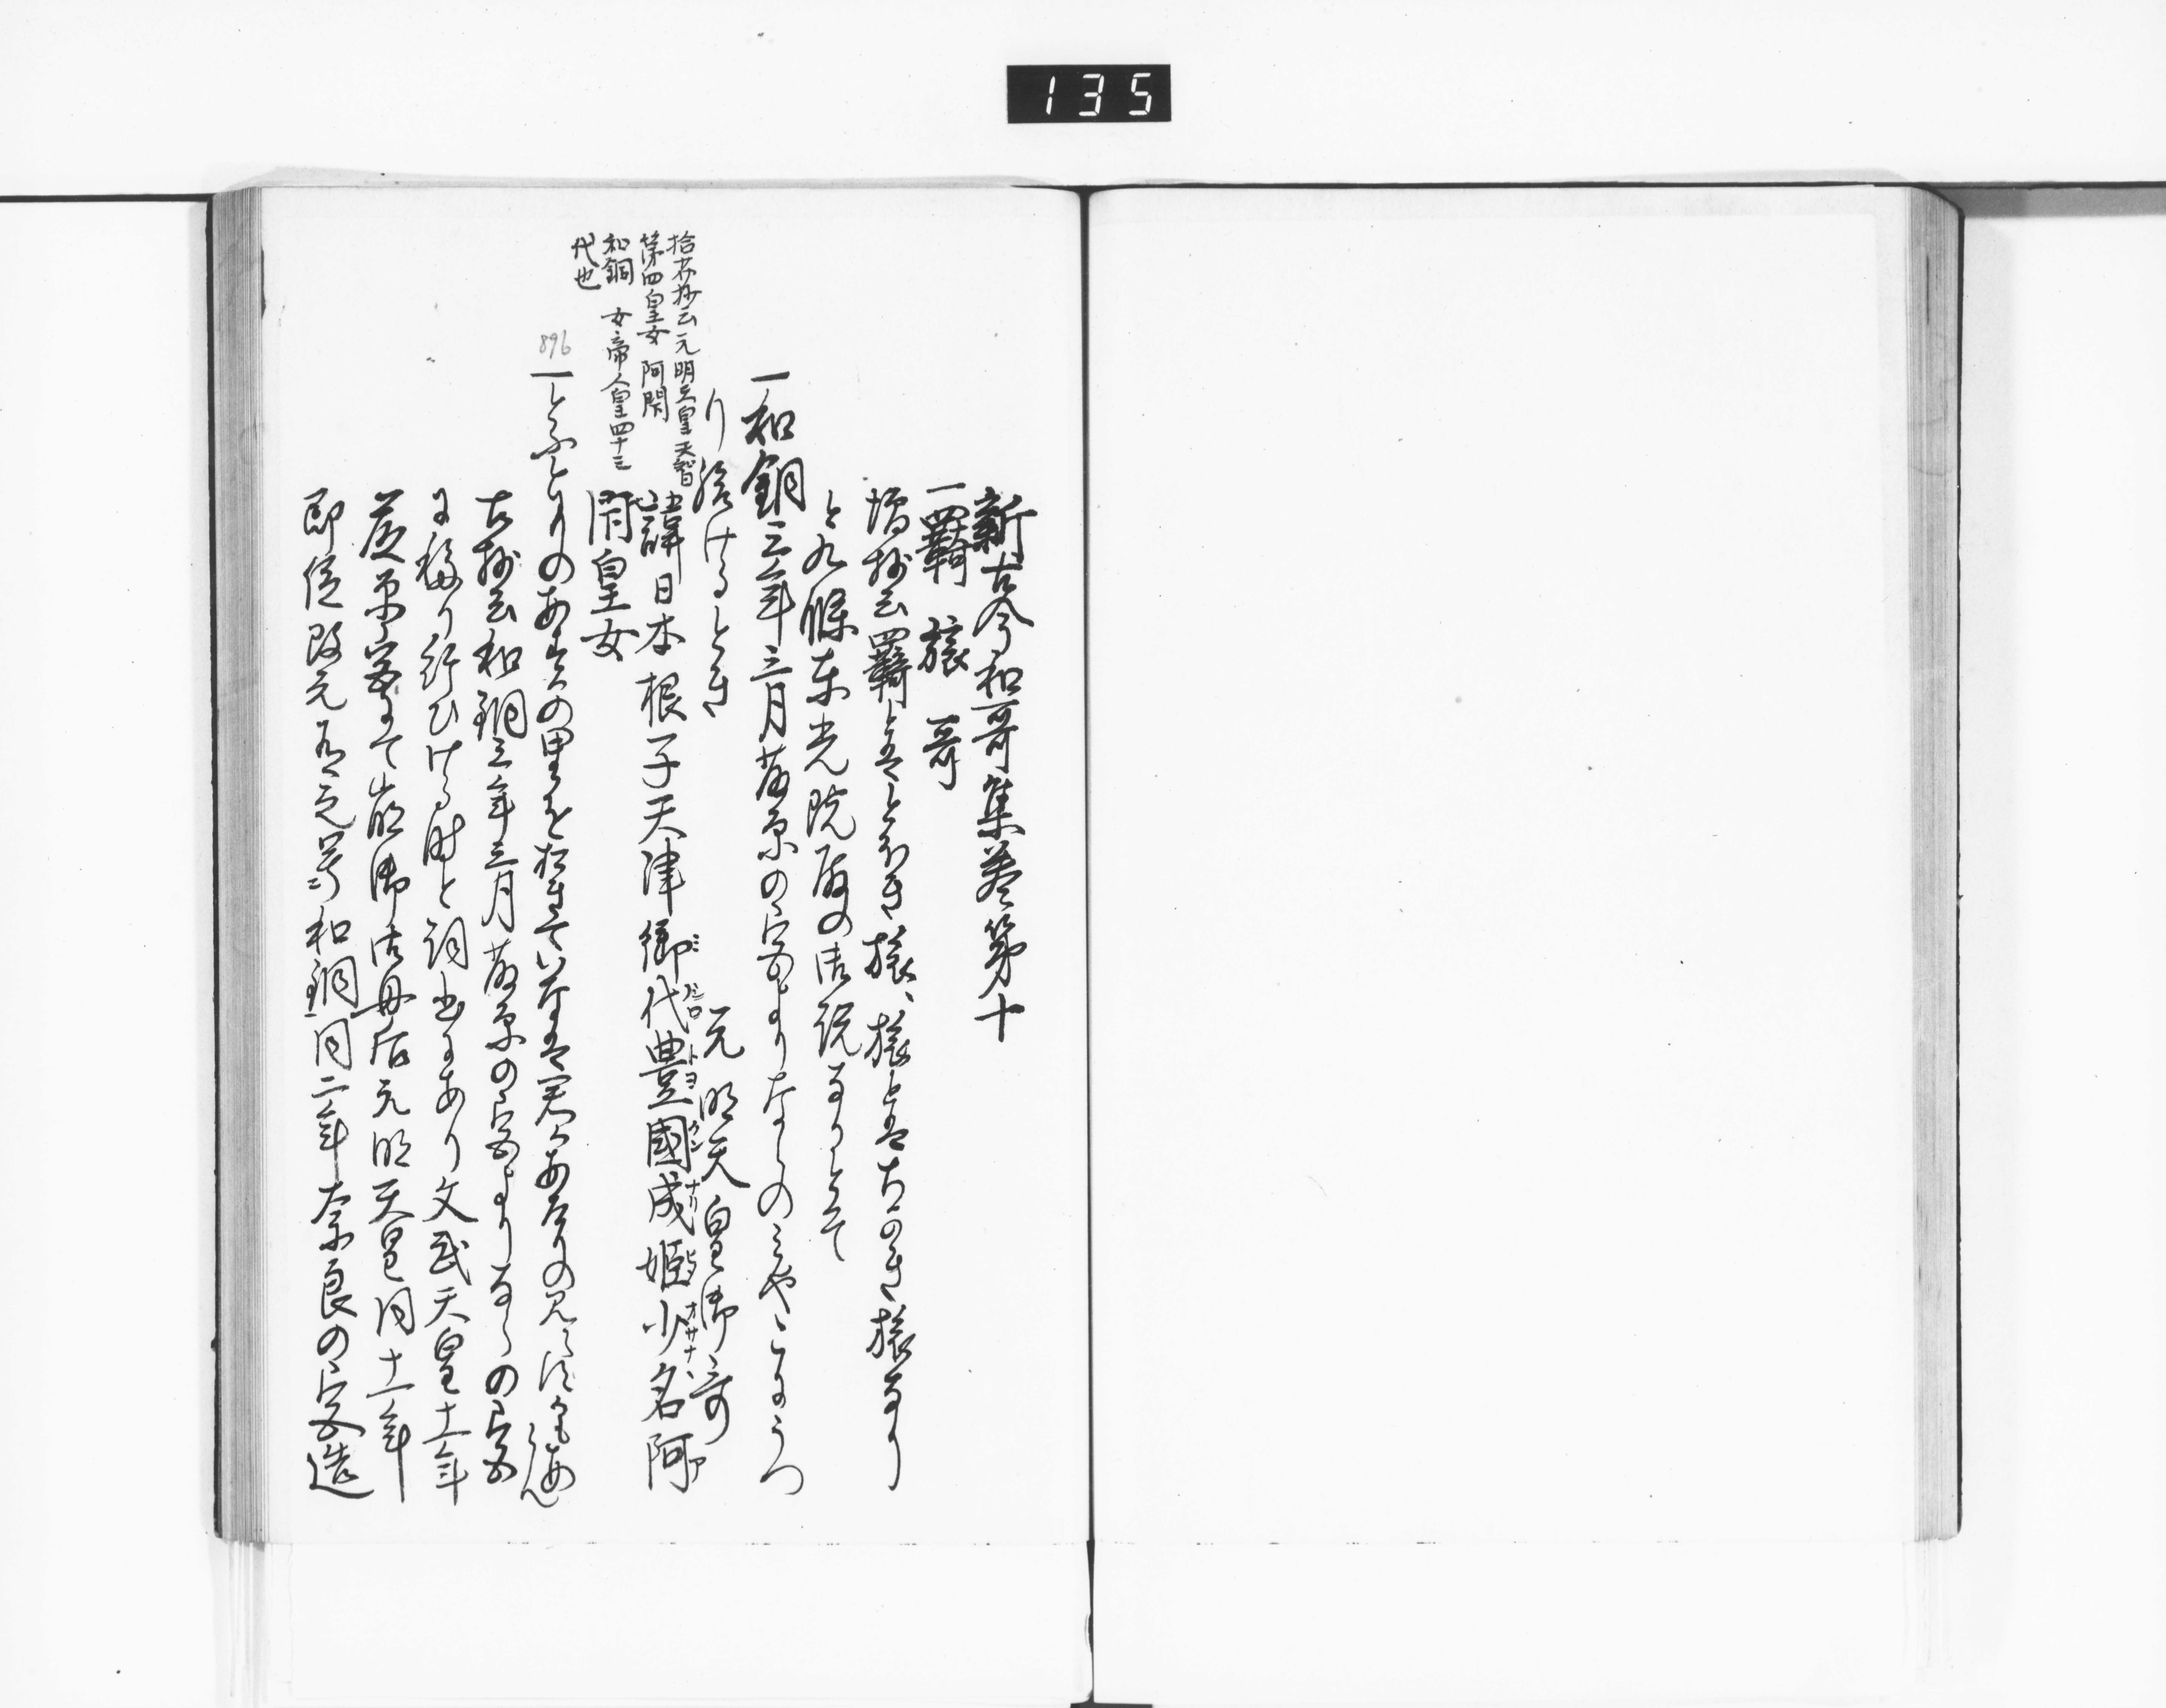 135
新古今和哥集巻第十
一羇旅哥
増抄云羇とはとをき旅、旅とはちかき旅なり
と九條東光院殿の御説なりとて
一和銅三年三月藤原の宮よりならのみやこにうつ
り給けるとき
元明天皇御哥
諱日本根子天津御代豊國成姫少名阿
ミ シロ トヨ クニ ナリ ヒメ オサナ ア
閇皇女
拾芥抄云元明天皇天智
第四皇女 阿閇
和銅 女帝人皇四十三
代也
896
一とふとりのあすかの里を在きていなは君かあたりは見えすかもあらん
古抄云和銅三年三月藤原の宮よりならの宮
に移り行ひける時と詞書にあり文武天皇十一年
藤原宮にて崩御御母后元明天皇同十一年
即位改元有元号和銅同二年奈良の宮造